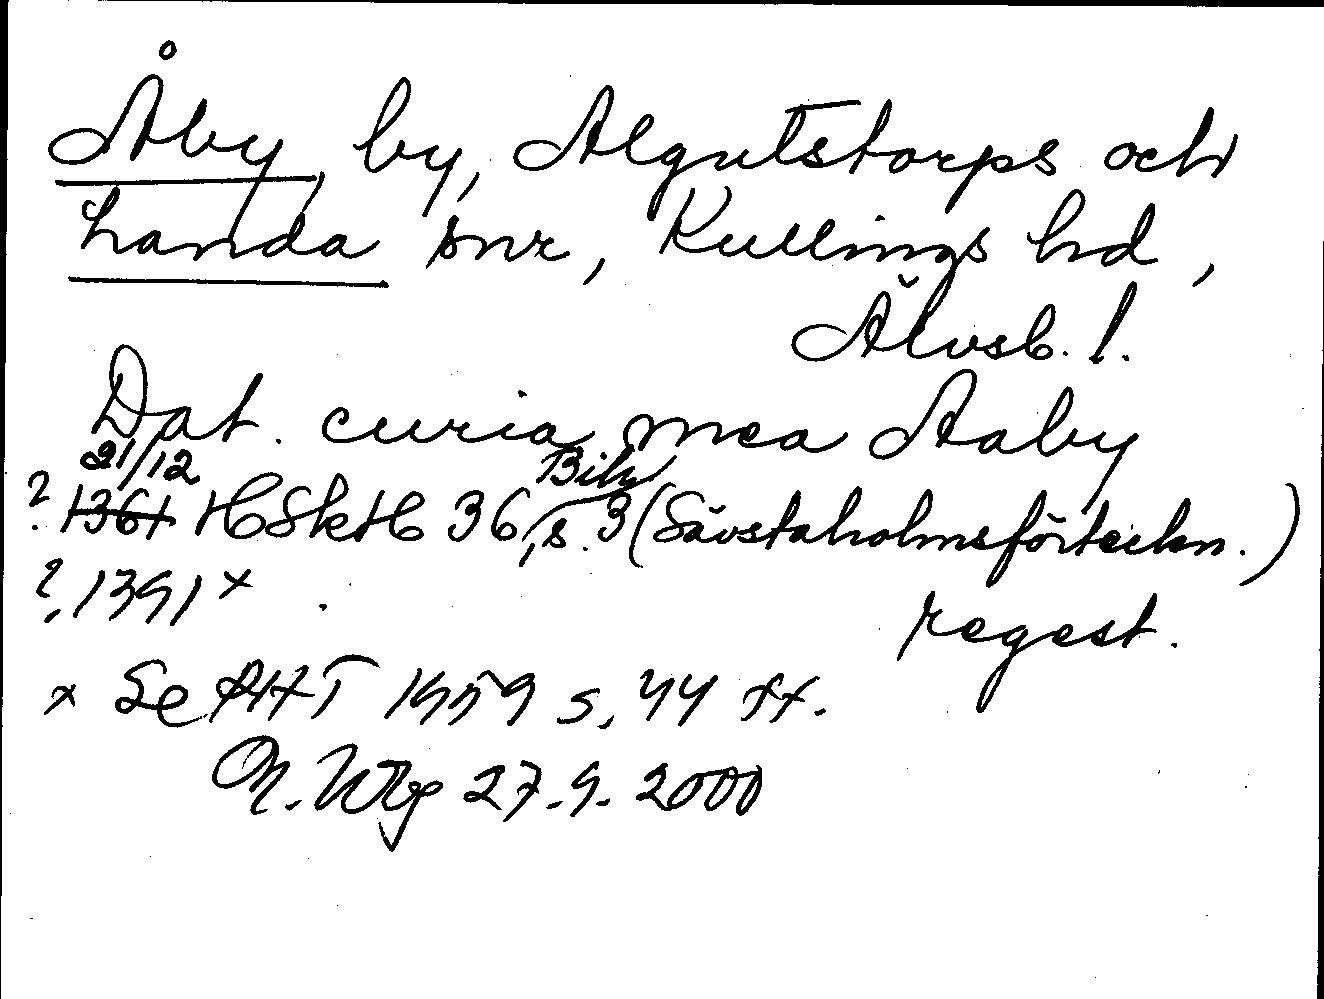 Åby, by, Algutstorps och
Landa snr, Kullings hd,
Älvsb. l.
Dat. curia mea Aaby
21/12 Bih
? 1361 HSkH 36, s. 3 (Sävstaholmsförteckn.)
?, 1391 x
regest.
x Se PHT 1959 s. 44 ff.
27.9.2000